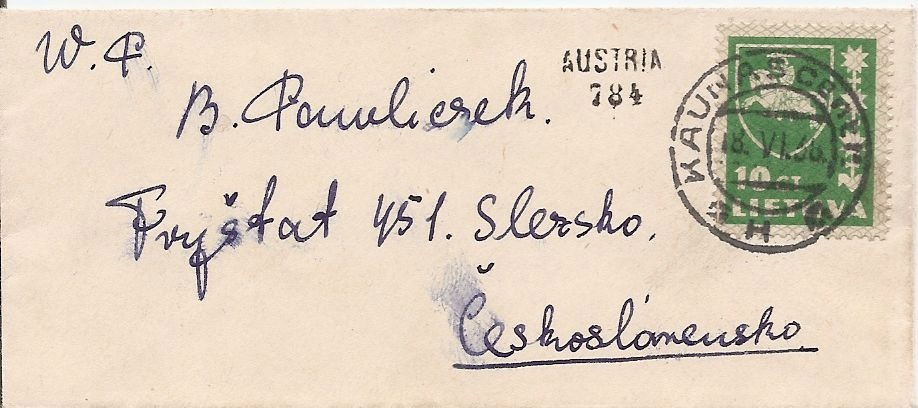 W. P.
AUSTRIA
784
B. Pawliczek.
Fryštat 451. Slezsko.
Československo
KAUNAS CENTR.
18. VI. 36.
H
10 CT
LIETUVA